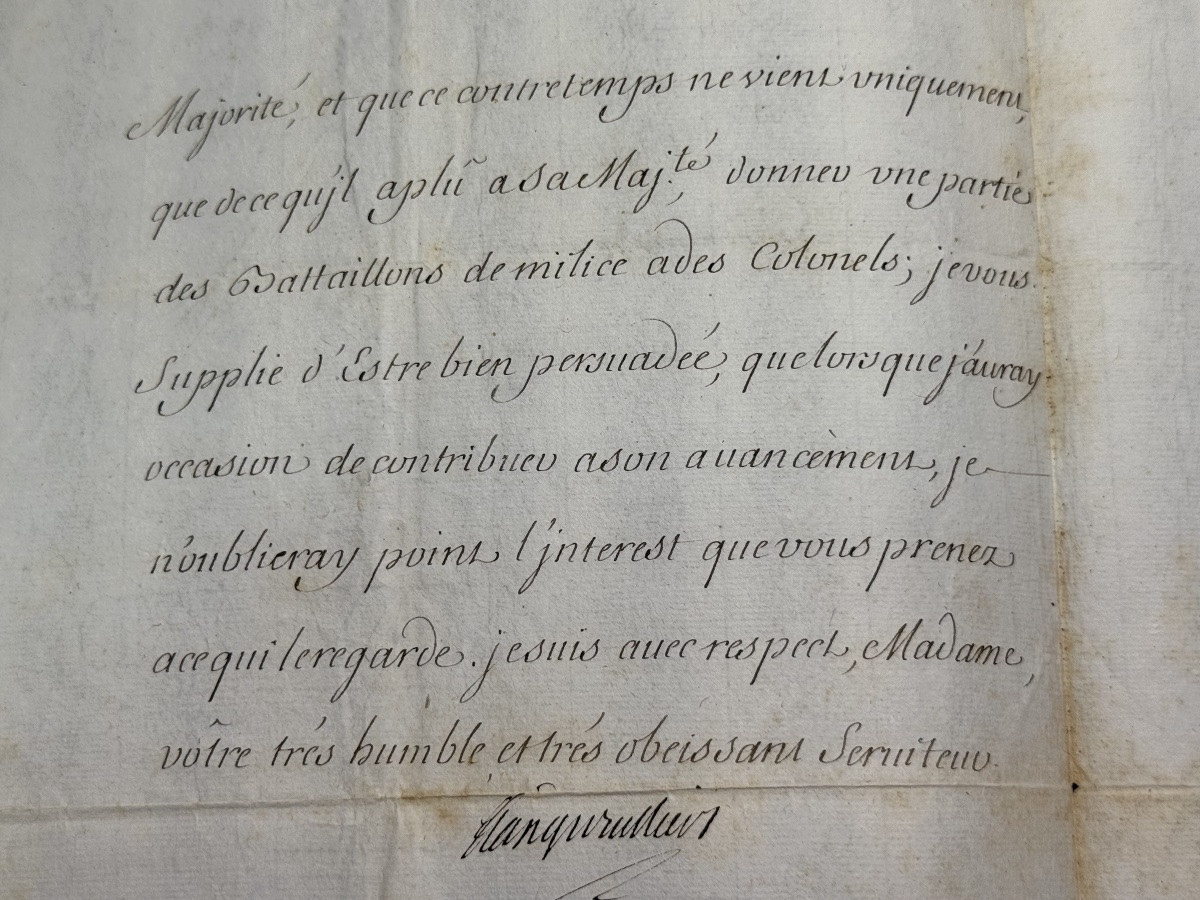 Majorité, et que ce contretemps ne vient vniquement,
que de ce qu'jl a plû a Sa Maj.té donner vne partie
des Battaillons de milice a des Colonels; je vous
Supplie d'Estre bien persuadée, que lorsque j'auray
occasion de contribuer a son auancèment, je
n'oublieray point l'jnterest que vous prenez
a ce qui le regarde. je suis auec respect, Madame,
vôtre trés humble et trés obeissant Seruiteur.